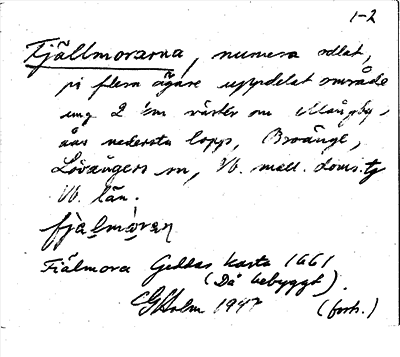 1-2
Fjällmorarna, numera odlat,
på flera ägare uppdelat område
ung 2 km väster om Mångby-
åns nedersta lopp, Broänge,
Lövångers sn, Vb. mell. doms.
Vb. län.
fjàlmòran
Fiälmora Geddas karta 1661
(Då bebyggt).
CGHolm 194
(forts.)